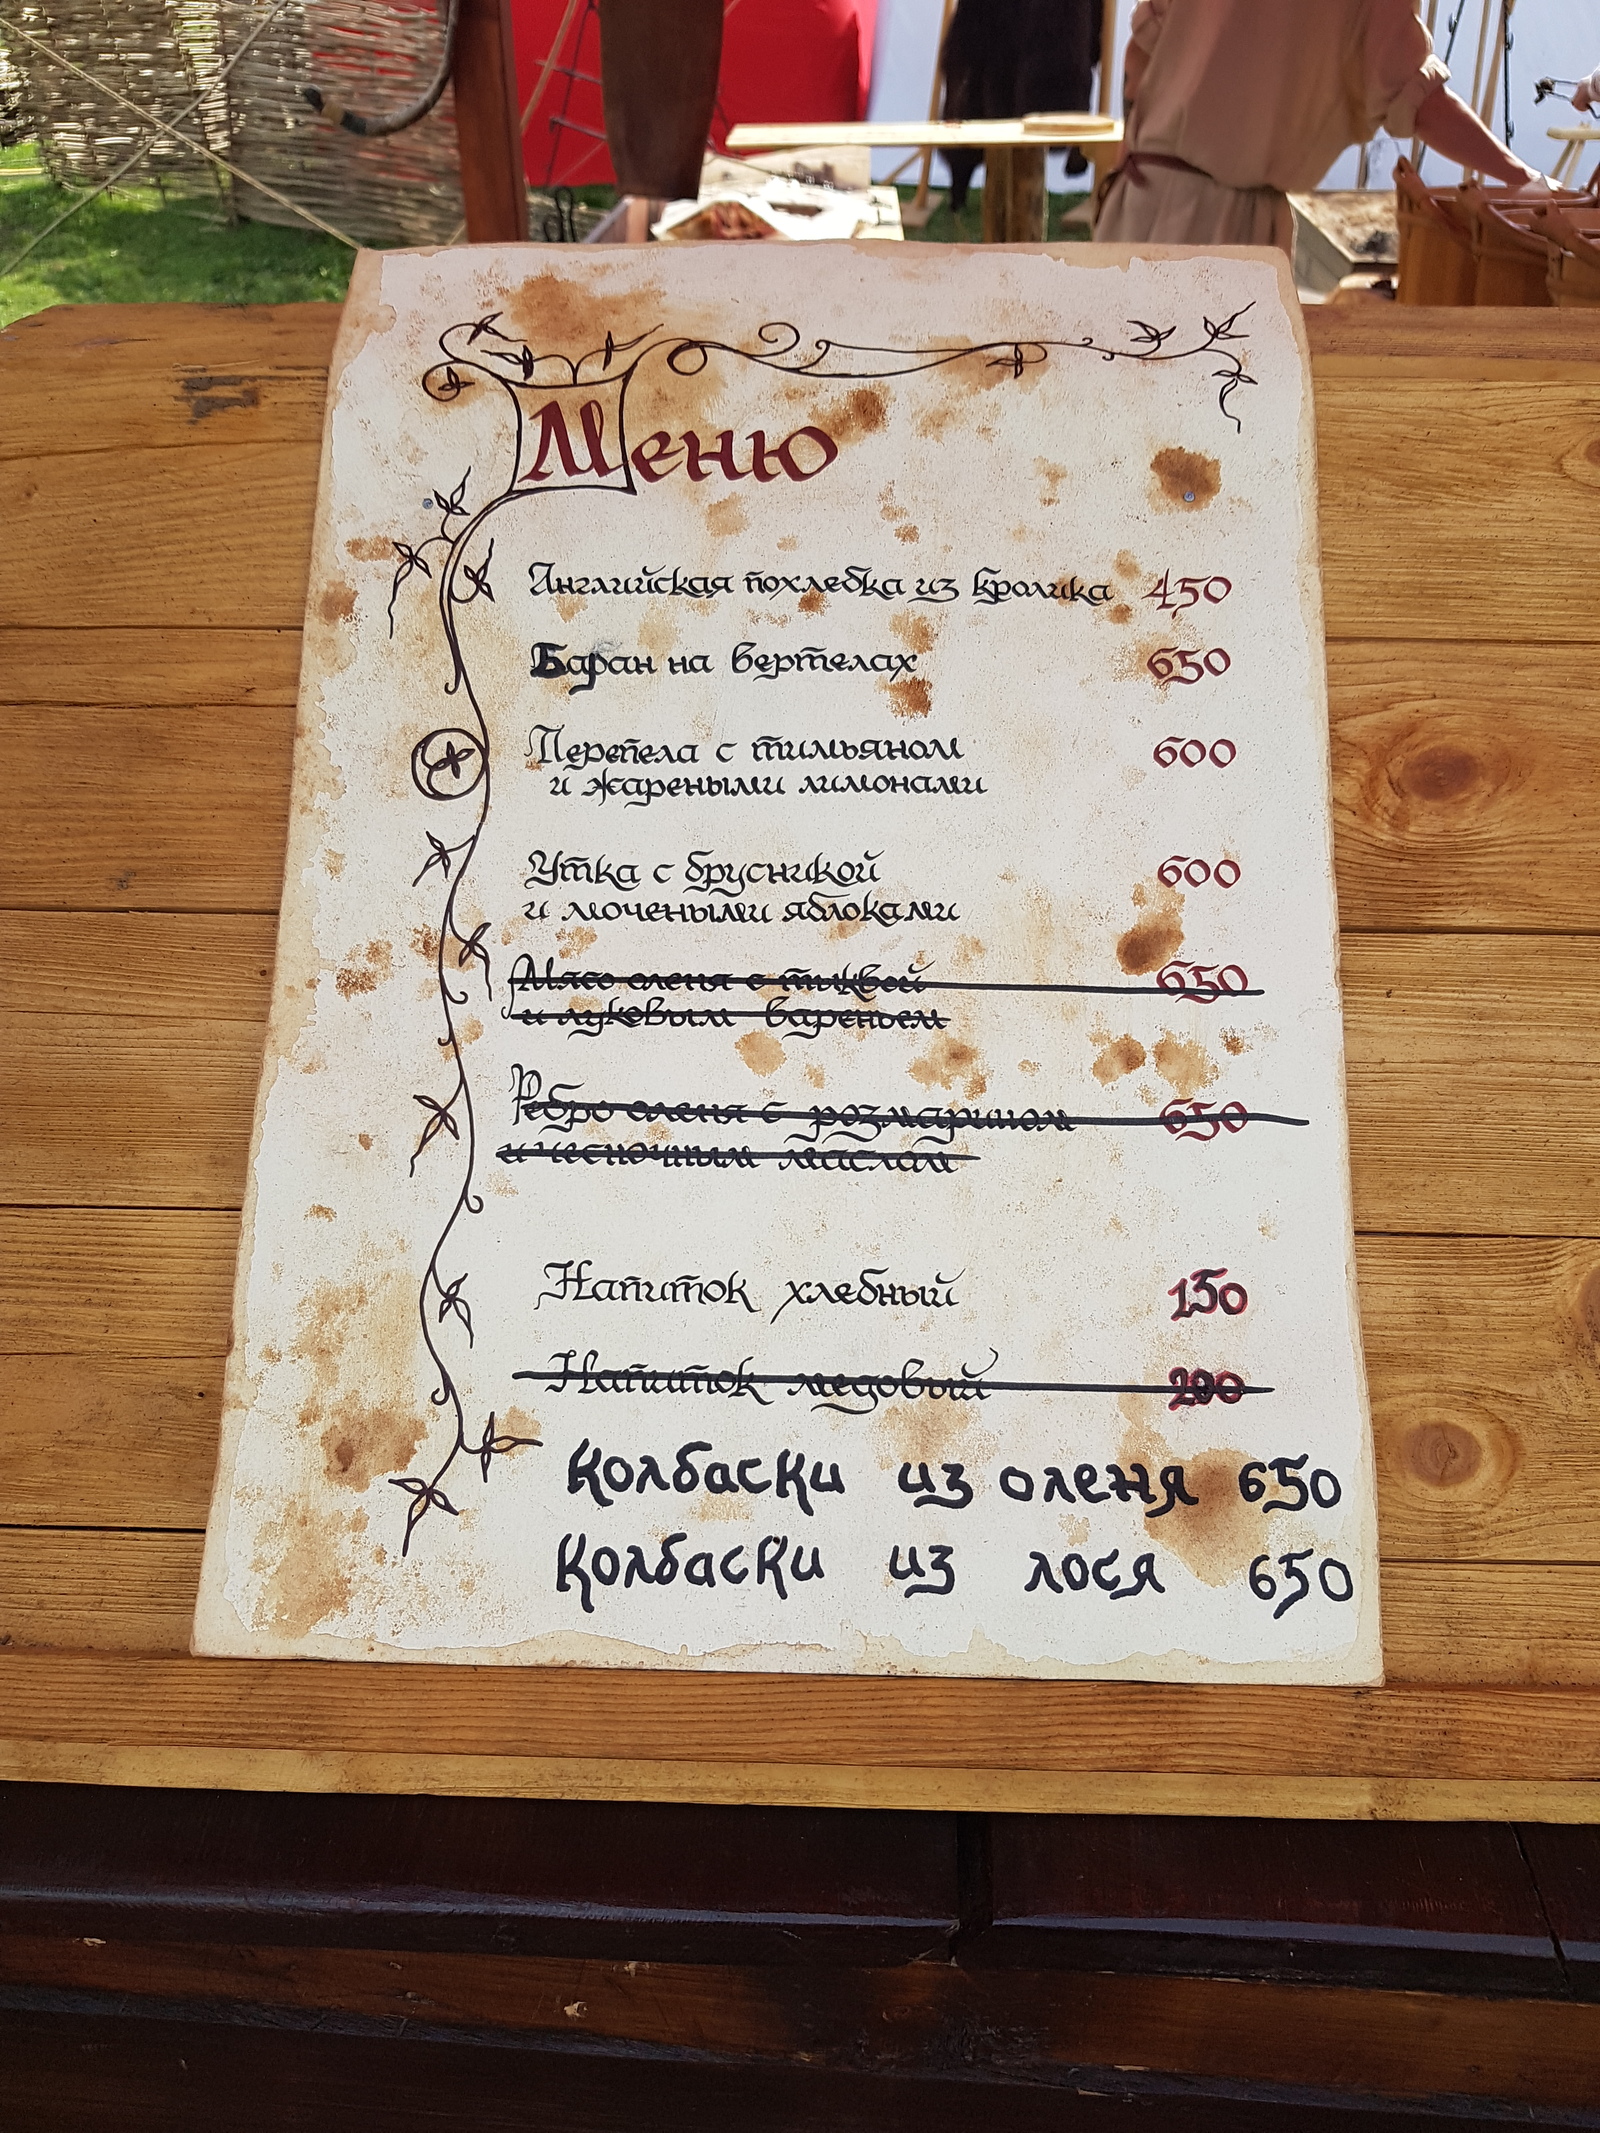 Меню
Английская похлебка из кролика 450
Баран на вертелах 650
Перепела с тимьяном 600
и жареными лимонами
Утка с брусникой 600
и мочеными яблоками
Мясо оленя с тыквой 650
и луковым вареньем
Ребро оленя с розмарином 650
и чесночным маслом
Напиток хлебный 150
Напиток медовый 200
Колбаски из оленя 650
Колбаски из лося 650